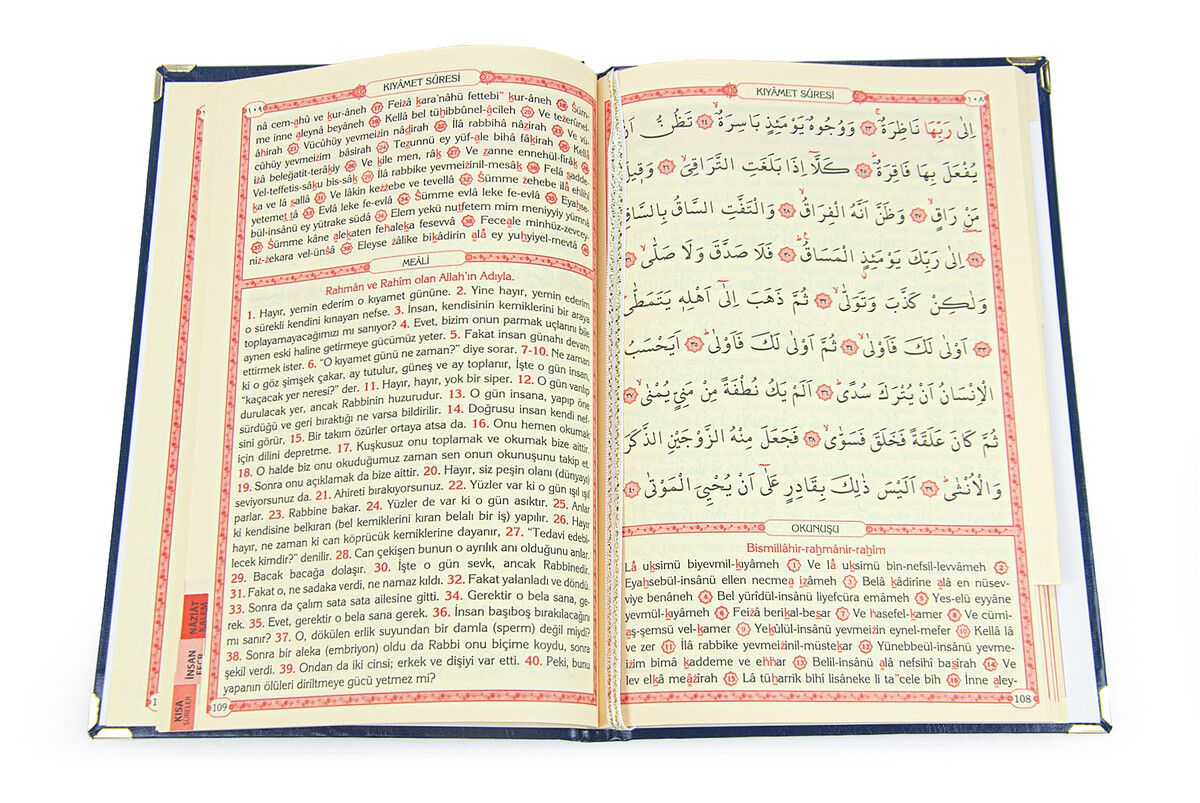 KIYÂMET SÛRESİ
١٠٨
اِلٰى رَبِّهَا نَاظِرَةٌۚ ﴿٢٣﴾ وَوُجُوهٌ يَوْمَئِذٍ بَاسِرَةٌۙ ﴿٢٤﴾ تَظُنُّ اَنْ
يُفْعَلَ بِهَا فَاقِرَةٌۜ ﴿٢٥﴾ كَلَّٓا اِذَا بَلَغَتِ التَّرَاقِيَۙ ﴿٢٦﴾ وَق۪يلَ
مَنْ رَاقٍۙ ﴿٢٧﴾ وَظَنَّ اَنَّهُ الْفِرَاقُۙ ﴿٢٨﴾ وَالْتَفَّتِ السَّاقُ بِالسَّاقِۙ
﴿٢٩﴾ اِلٰى رَبِّكَ يَوْمَئِذٍ الْمَسَاقُۜ ﴿٣٠﴾ فَلَا صَدَّقَ وَلَا صَلّٰىۙ ﴿٣١﴾
وَلٰكِنْ كَذَّبَ وَتَوَلّٰىۙ ﴿٣٢﴾ ثُمَّ ذَهَبَ اِلٰٓى اَهْلِه۪ يَتَمَطّٰىۜ
﴿٣٣﴾ اَوْلٰى لَكَ فَاَوْلٰىۙ ﴿٣٤﴾ ثُمَّ اَوْلٰى لَكَ فَاَوْلٰىۜ ﴿٣٥﴾ اَيَحْسَبُ
الْاِنْسَانُ اَنْ يُتْرَكَ سُدًىۜ ﴿٣٦﴾ اَلَمْ يَكُ نُطْفَةً مِنْ مَنِيٍّ يُمْنٰىۙ ﴿٣٧﴾
ثُمَّ كَانَ عَلَقَةً فَخَلَقَ فَسَوّٰىۙ ﴿٣٨﴾ فَجَعَلَ مِنْهُ الزَّوْجَيْنِ الذَّكَرَ
وَالْاُنْثٰىۜ ﴿٣٩﴾ اَلَيْسَ ذٰلِكَ بِقَادِرٍ عَلٰٓى اَنْ يُحْيِيَ الْمَوْتٰى ﴿٤٠﴾
OKUNUŞU
Bismillâhir-rahmânir-rahîm
Lâ uksimü biyevmil-kıyâmeh 1 Ve lâ uksimü bin-nefsil-levvâmeh 2
Eyahsebül-insânü ellen necmea izâmeh 3 Belâ kâdirîne alâ en nüsev-
viye benâneh 4 Bel yürîdül-insânü liyefcüra emâmeh 5 Yes-elü eyyâne
yevmül-kıyâmeh 6 Feizâ berikal-besar 7 Ve hasefel-kamer 8 Ve cümi-
aş-şemsü vel-kamer 9 Yekûlül-insânü yevmeizin eynel-mefer 10 Kellâ lâ
ve zer 11 İlâ rabbike yevmeizinil-müstekar 12 Yünebbeül-insânü yevme-
izim bimâ kaddeme ve ehhar 13 Belil-insânü alâ nefsihî basîrah 14 Ve
lev elkâ meâzîrah 15 Lâ tüharrik bihî lisâneke li ta"cele bih 16 İnne aley-
108
KIYÂMET SÛRESİ
١٠٩
nâ cem-ahû ve kur-âneh 17 Feizâ kara'nâhü fettebi" kur-âneh 18 Süm-
me inne aleynâ beyâneh 19 Kellâ bel tühibbûnel-âcileh 20 Ve tezerûnel-
âhirah 21 Vücûhüy yevmeizin nâdirah 22 İlâ rabbihâ nâzirah 23 Ve vü-
cûhüy yevmeizim bâsirah 24 Tezunnü ey yüf-ale bihâ fâkirah 25 Kellâ
izâ beleğatit-terâkiy 26 Ve kîle men, râk 27 Ve zanne ennehül-firâk 28
Vel-teffetis-sâku bis-sâk 29 İlâ rabbike yevmeizinil-mesâk 30 Felâ sadde-
ka ve lâ sallâ 31 Ve lâkin kezzebe ve tevellâ 32 Sümme zehebe ilâ ehlihî
yetemet tâ 33 Evlâ leke fe-evlâ 34 Sümme evlâ leke fe-evlâ 35 Eyahse-
bül-insânü ey yütrake südâ 36 Elem yekü nutfetem mim meniyyiy yümnâ
37 Sümme kâne alekaten fehaleka fesevvâ 38 Feceale minhüz-zevcey-
niz-zekara vel-ünsâ 39 Eleyse zâlike bikâdirin alâ ey yuhyiyel-mevtâ 40
MEÂLİ
Rahmân ve Rahîm olan Allah'ın Adıyla.
1. Hayır, yemin ederim o kıyamet gününe. 2. Yine hayır, yemin ederim
o sürekli kendini kınayan nefse. 3. İnsan, kendisinin kemiklerini bir araya
toplayamayacağımızı mı sanıyor? 4. Evet, bizim onun parmak uçlarını bile
aynen eski haline getirmeye gücümüz yeter. 5. Fakat insan günahı devam
ettirmek ister. 6. "O kıyamet günü ne zaman?" diye sorar. 7-10. Ne zaman
ki o göz şimşek çakar, ay tutulur, güneş ve ay toplanır, İşte o gün insan,
"kaçacak yer neresi?" der. 11. Hayır, hayır, yok bir siper. 12. O gün varılıp
durulacak yer, ancak Rabbinin huzurudur. 13. O gün insana, yapıp öne
sürdüğü ve geri bıraktığı ne varsa bildirilir. 14. Doğrusu insan kendi nef-
sini görür, 15. Bir takım özürler ortaya atsa da. 16. Onu hemen okumak
için dilini depretme. 17. Kuşkusuz onu toplamak ve okumak bize aittir.
18. O halde biz onu okuduğumuz zaman sen onun okunuşunu takip et.
19. Sonra onu açıklamak da bize aittir. 20. Hayır, siz peşin olanı (dünyayı)
seviyorsunuz da. 21. Ahireti bırakıyorsunuz. 22. Yüzler var ki o gün ışıl ışıl
parlar. 23. Rabbine bakar. 24. Yüzler de var ki o gün asıktır. 25. Anlar
ki kendisine belkıran (bel kemiklerini kıran belalı bir iş) yapılır. 26. Hayır
hayır, ne zaman ki can köprücük kemiklerine dayanır, 27. "Tedavi edebi-
lecek kimdir?" denilir. 28. Can çekişen bunun o ayrılık anı olduğunu anlar.
29. Bacak bacağa dolaşır. 30. İşte o gün sevk, ancak Rabbinedir.
31. Fakat o, ne sadaka verdi, ne namaz kıldı. 32. Fakat yalanladı ve döndü.
33. Sonra da çalım sata sata ailesine gitti. 34. Gerektir o bela sana, ge-
rek. 35. Evet, gerektir o bela sana gerek. 36. İnsan başıboş bırakılacağını
mı sanır? 37. O, dökülen erlik suyundan bir damla (sperm) değil miydi?
38. Sonra bir aleka (embriyon) oldu da Rabbi onu biçime koydu, sonra
şekil verdi. 39. Ondan da iki cinsi; erkek ve dişiyi var etti. 40. Peki, bunu
yapanın ölüleri diriltmeye gücü yetmez mi?
109
NÂZİÂT
KALEM
İNSAN
FECR
KISA
SÛRELER